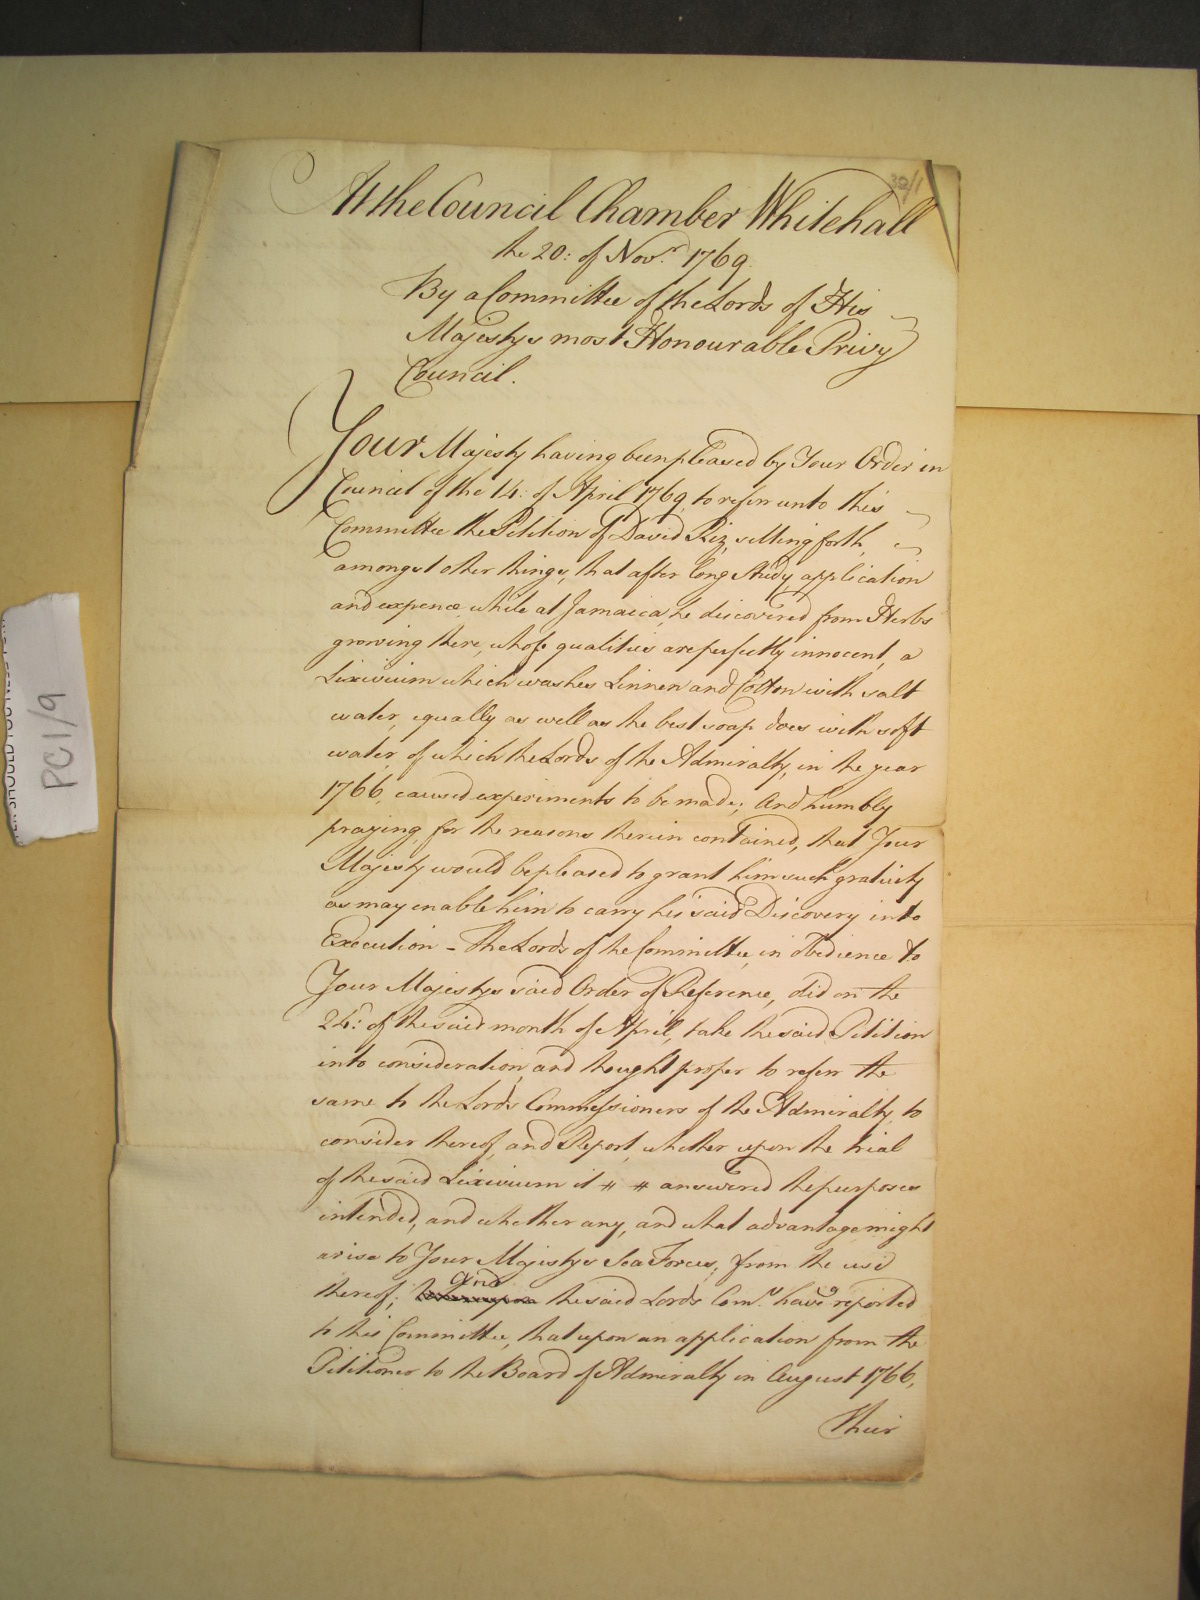 30/1
At the Council Chamber Whitehall
the 20: of Nov.r 1769.
By a Committee of the Lords of His
Majestys most Honourable Privy
Council.
Your Majesty having been pleased by Your Order in
Council of the 14: of April 1769, to referr unto this
Committee the Petition of David Riz, setting forth,
amongst other things, that after long Study, application
and expence, while at Jamaica, he discovered from Herbs
growing there, whose qualities are perfectly innocent, a
Lixivium which washes Linnen and Cotton with salt
water, equally as well as the best soap does with soft
water, of which the Lords of the Admiralty, in the year
1766, caused experiments to be made; And humbly
praying, for the reasons therein contained, that Your
Majesty would be pleased to grant him such gratuity
as may enable him to carry his said Discovery into
Execution - The Lords of the Committee, in obedience to
Your Majestys said Order of Reference, did on the
24: of the said month of April, take the said Petition
into consideration, and thought proper to referr the
same to the Lords Commissioners of the Admiralty, to
consider thereof, and Report, whether upon the trial
of the said Lixivium it # # answered the purposes
intended, and whether any, and what advantage might
arise to Your Majestys Sea Forces, from the use
and
thereof; the said Lords Com.rs have reported
to this Committee, that upon an application from the
Petitioner to the Board of Admiralty in August 1766,
Their
PC1/9